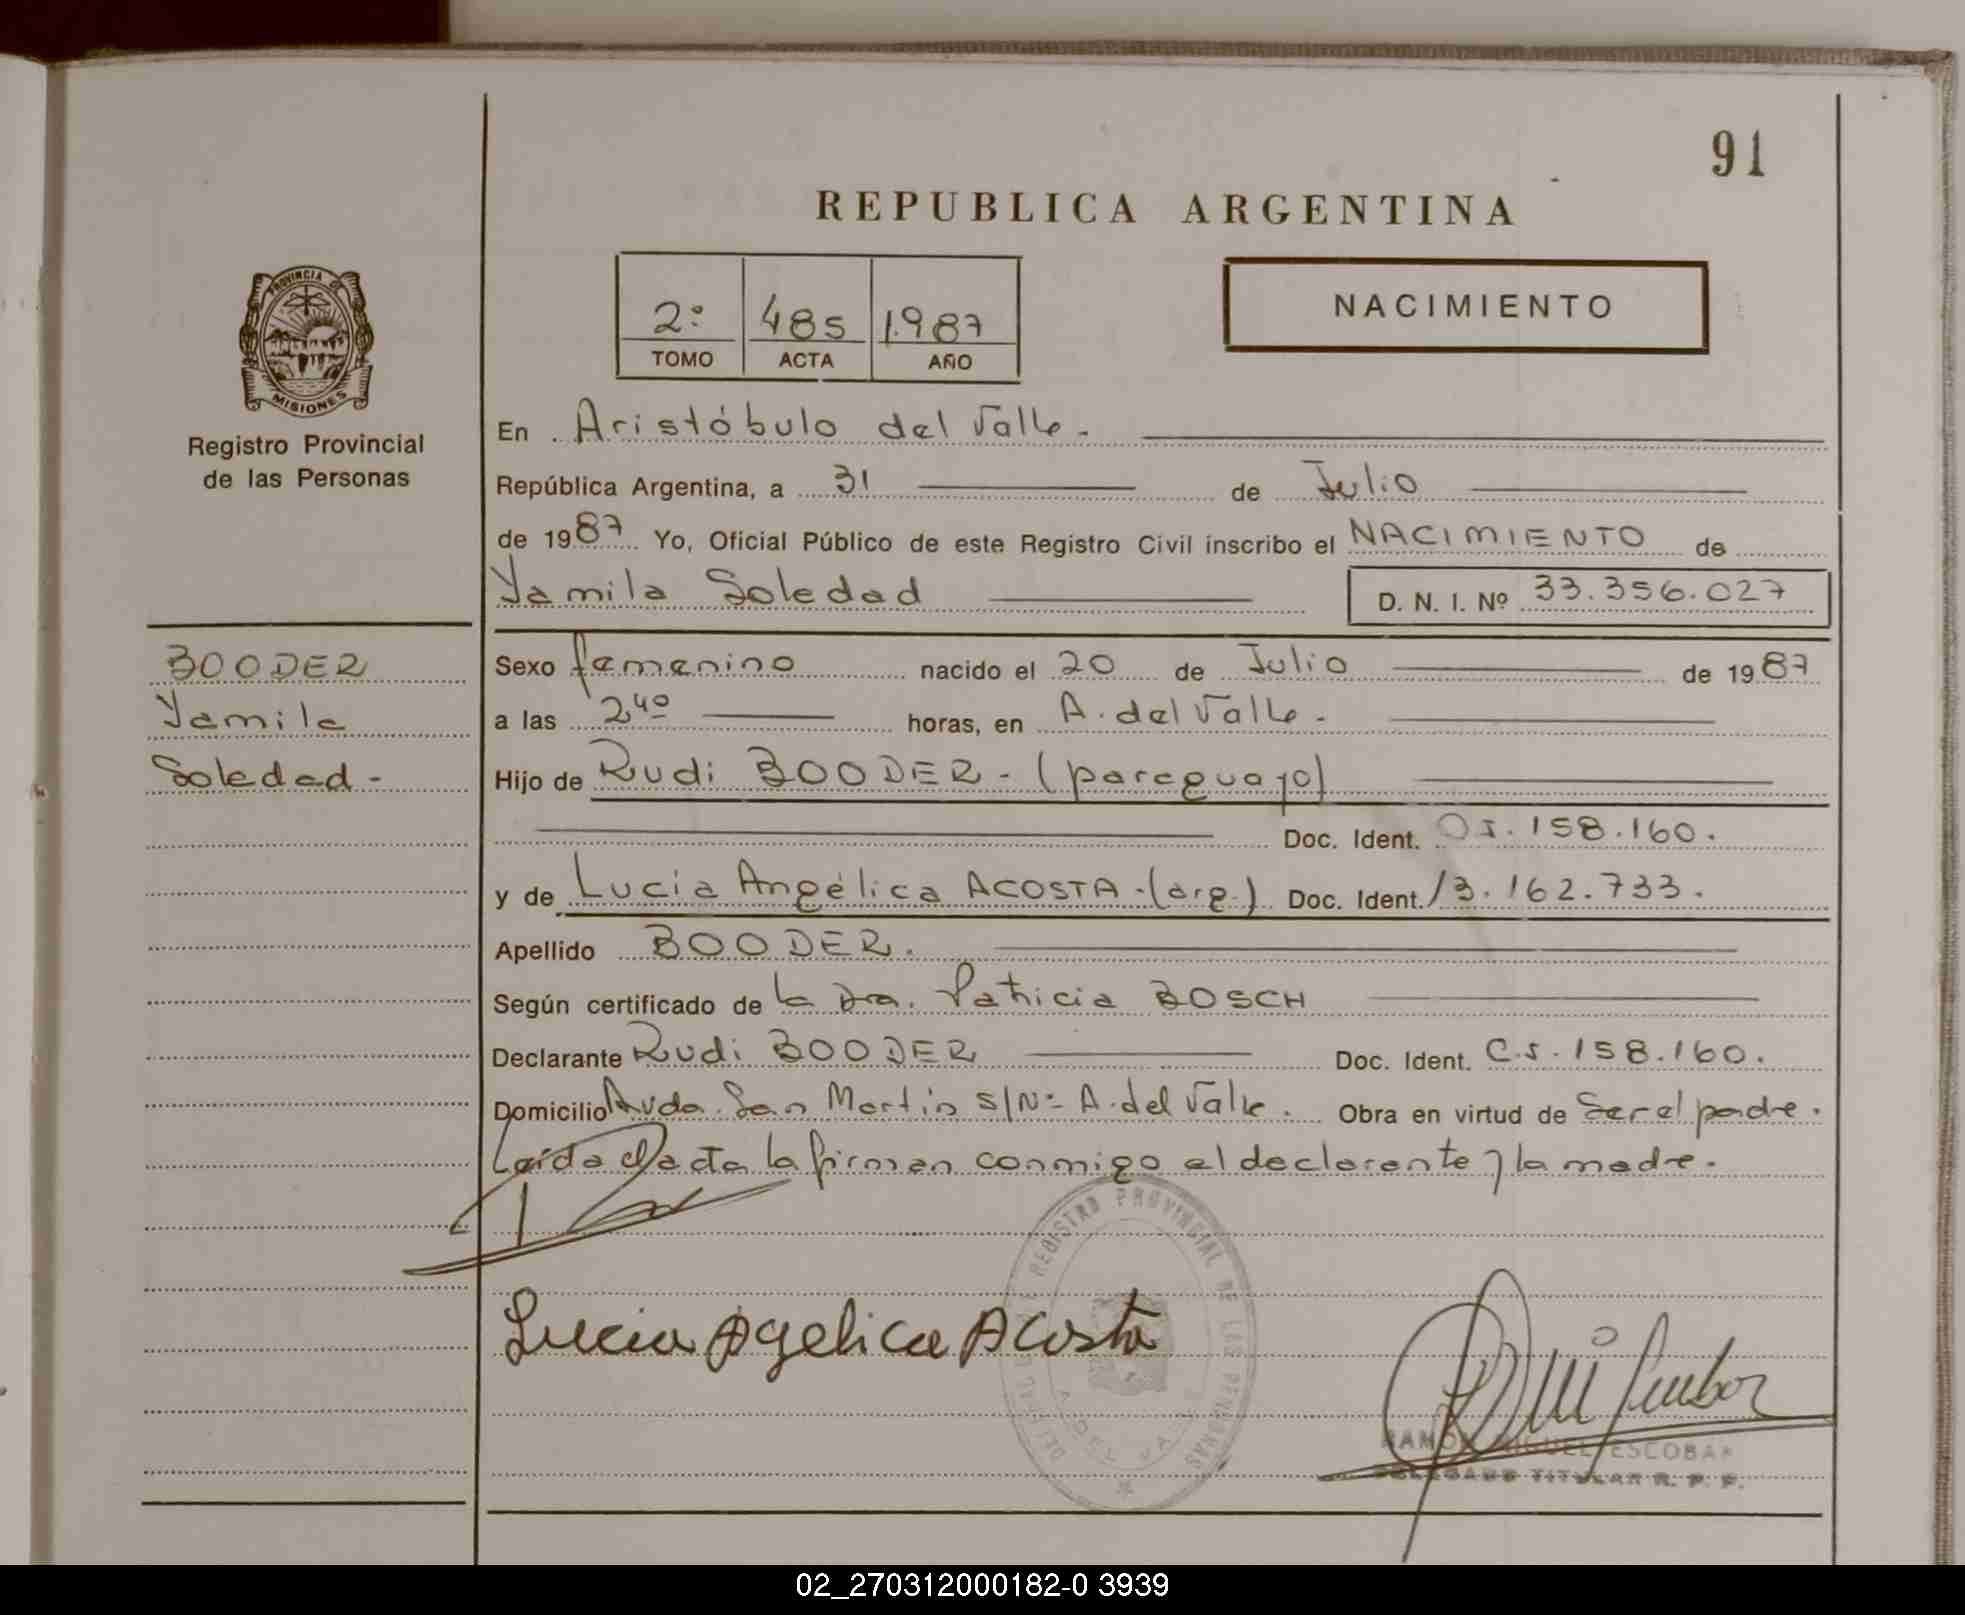 91
REPUBLICA ARGENTINA
PROVINCIA DE
MISIONES
Registro Provincial
de las Personas
2º 485 1.987
TOMO ACTA AÑO
NACIMIENTO
En Aristóbulo del Valle.
República Argentina, a 31 de Julio
de 1987 Yo, Oficial Público de este Registro Civil inscribo el NACIMIENTO de
Yamila Soledad D. N. I. Nº 33.356.027
BOODER
Yamila
Soledad -
Sexo femenino nacido el 20 de Julio de 1987
a las 24º horas, en A. del Valle.
Hijo de Rudi BOODER - (paraguayo)
Doc. Ident. 158.160.
y de Lucía Angélica ACOSTA - (arg.) Doc. Ident. 13.162.733.
Apellido BOODER.
Según certificado de la Dra. Patricia BOSCH
Declarante Rudi BOODER Doc. Ident. C.I. 158.160.
Domicilio Avda. San Martín S/Nº A. del Valle. Obra en virtud de Ser el padre.
Leída el acta la firman conmigo el declarante y la madre.
REGISTRO PROVINCIAL DE LAS PERSONAS
A. DEL VALLE
Lucia Agelica Acosta
RAMON MIGUEL ESCOBAR
DELEGADO TITULAR R. P. P.
02_270312000182-0 3939